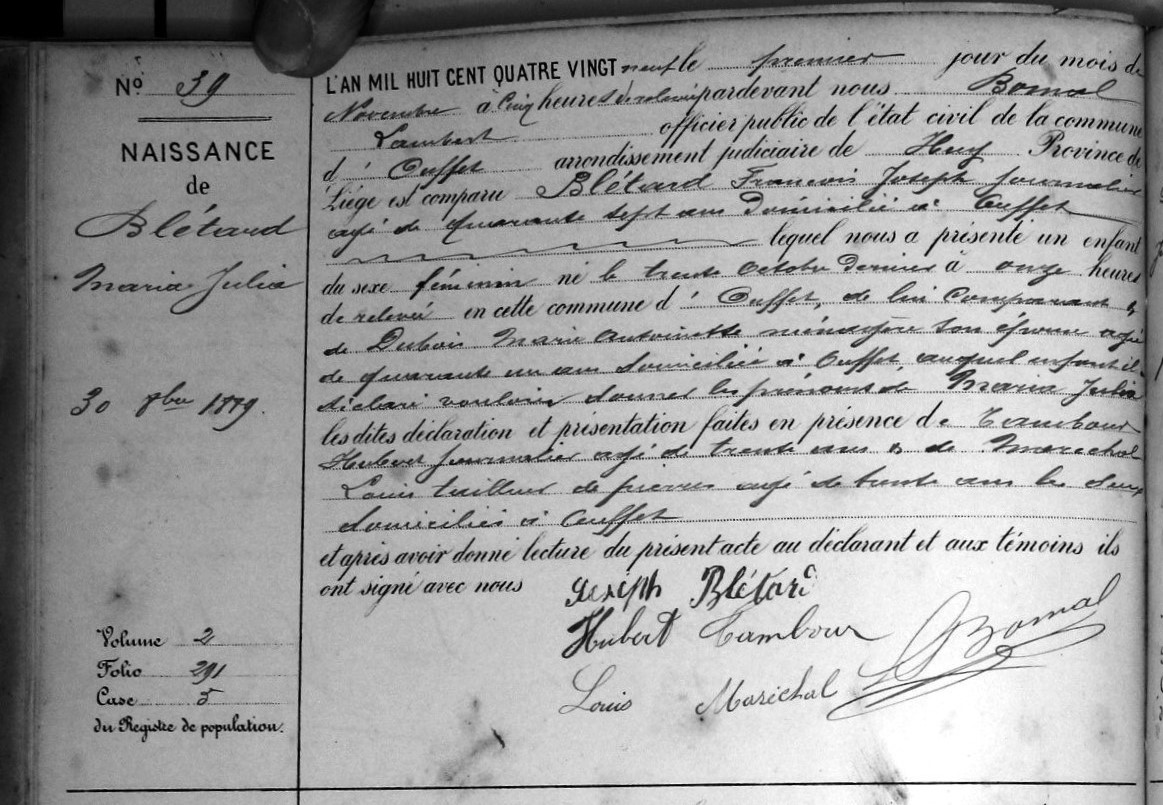 N° 39
NAISSANCE
de
Blétard
Maria Julia
30 8bre 1889.
Volume 2
Folio 291
Case 5
du Registre de population.
L'AN MIL HUIT CENT QUATRE VINGT neuf le premier jour du mois de
Novembre à Cinq heures de relevée pardevant nous Bomal
Lambert officier public de l'état civil de la commune
d' Ouffet arrondissement judiciaire de Huy Province de
Liége est comparu Blétard François Joseph journalier
agé de quarante sept ans domicilié à Ouffet
lequel nous a présenté un enfant
du sexe féminin né le trente Octobre dernier à onze heures
de relevée en cette commune d' Ouffet, de lui Comparant &
de Dubois Marie Antoinette ménagère son épouse agée
de quarante un ans domiciliée à Ouffet, auquel enfant il a
déclaré vouloir donner les prénoms de Maria Julia
les dites déclaration et présentation faites en présence de Tambour
Hubert journalier agé de trente ans & de Maréchal
Louis tailleur de pierres agé de trente ans les deux
domiciliés à Ouffet
et après avoir donné lecture du présent acte au déclarant et aux témoins ils
ont signé avec nous Joseph Blétard
Hubert Tambour
LBomal
Louis Maréchal